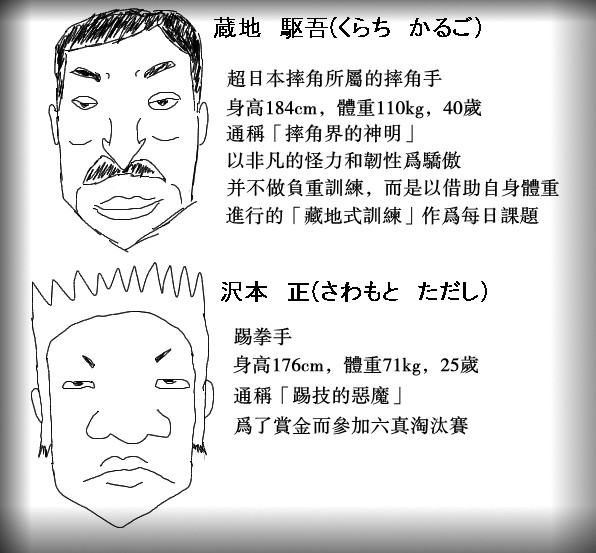 蔵地　駆吾(くらち　かるご)
超日本摔角所屬的摔角手
身高184cm，體重110kg，40歲
通稱「摔角界的神明」
以非凡的怪力和韌性爲驕傲
并不做負重訓練，而是以借助自身體重
進行的「藏地式訓練」作爲每日課題
沢本　正(さわもと　ただし)
踢拳手
身高176cm，體重71kg，25歲
通稱「踢技的惡魔」
爲了賞金而參加六真淘汰賽